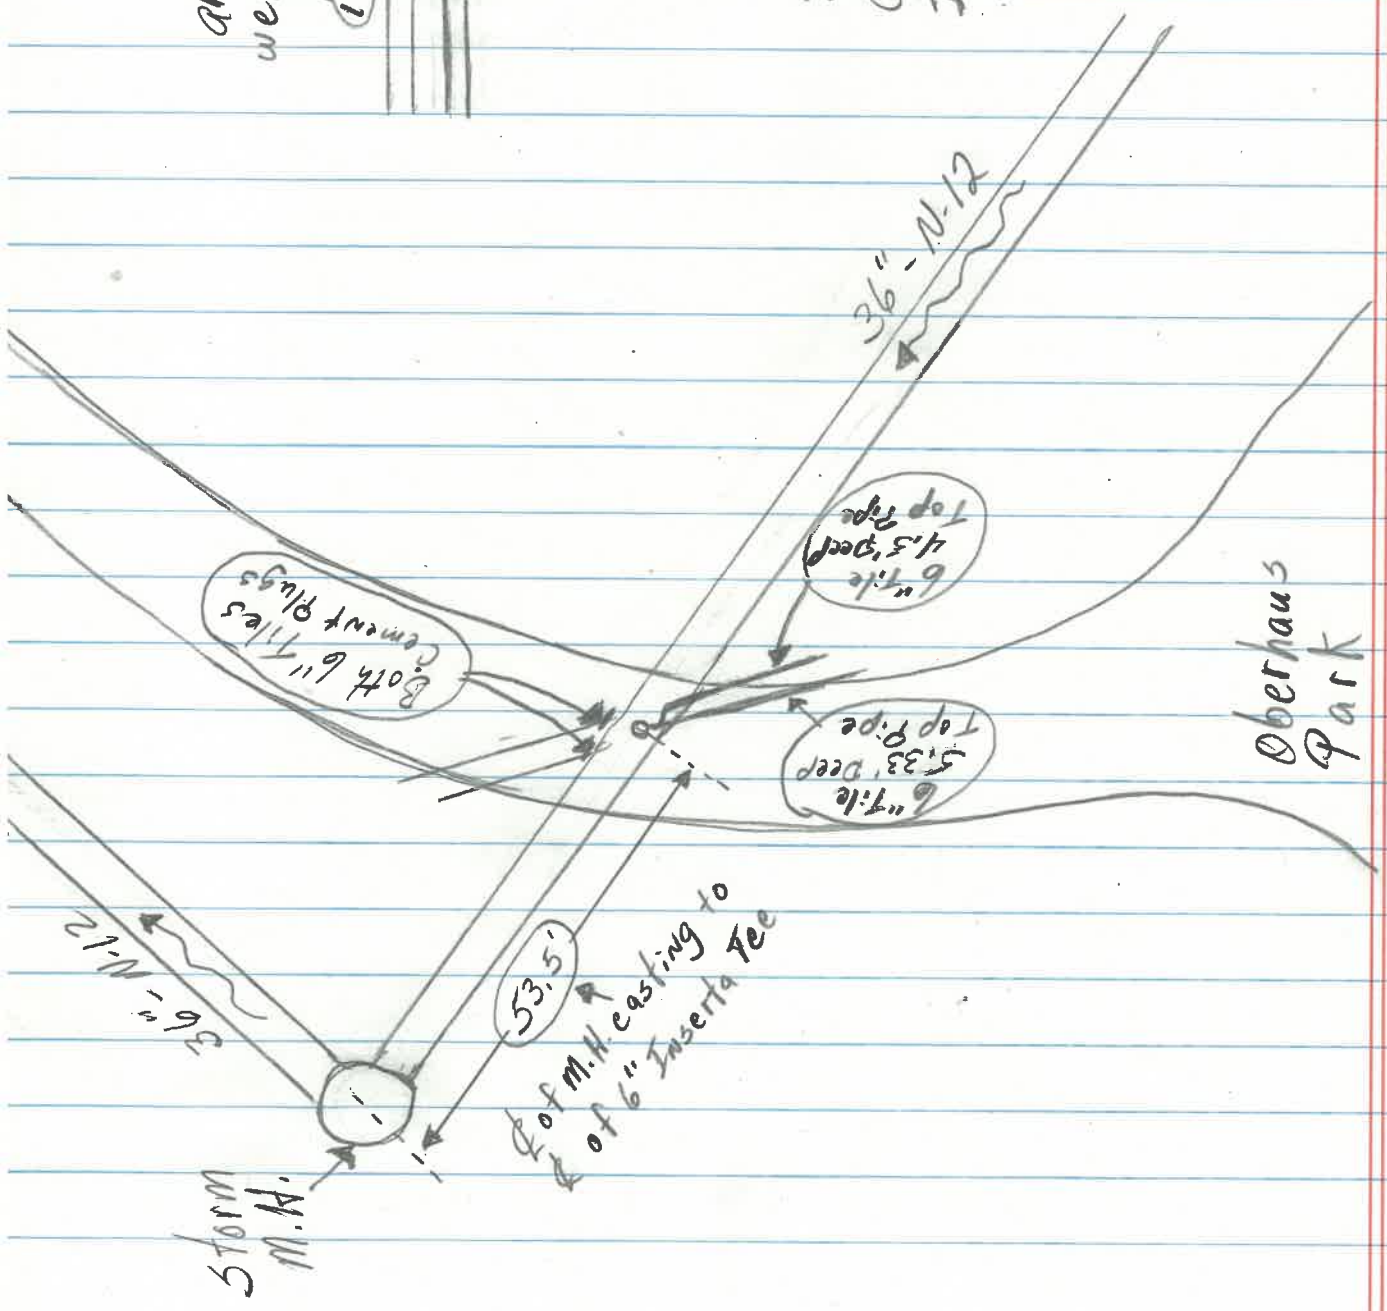 we
36" - N-12
6" Tile
4.5' Deep
Top Pipe
Both 6" Tiles
Cement Plugs
6" Tile
5.33' Deep
Top Pipe
Oberhaus
Park
36" - N-12
53.5'
℄ of M.H. casting to
℄ of 6" Inserta Tee
Storm
M.H.